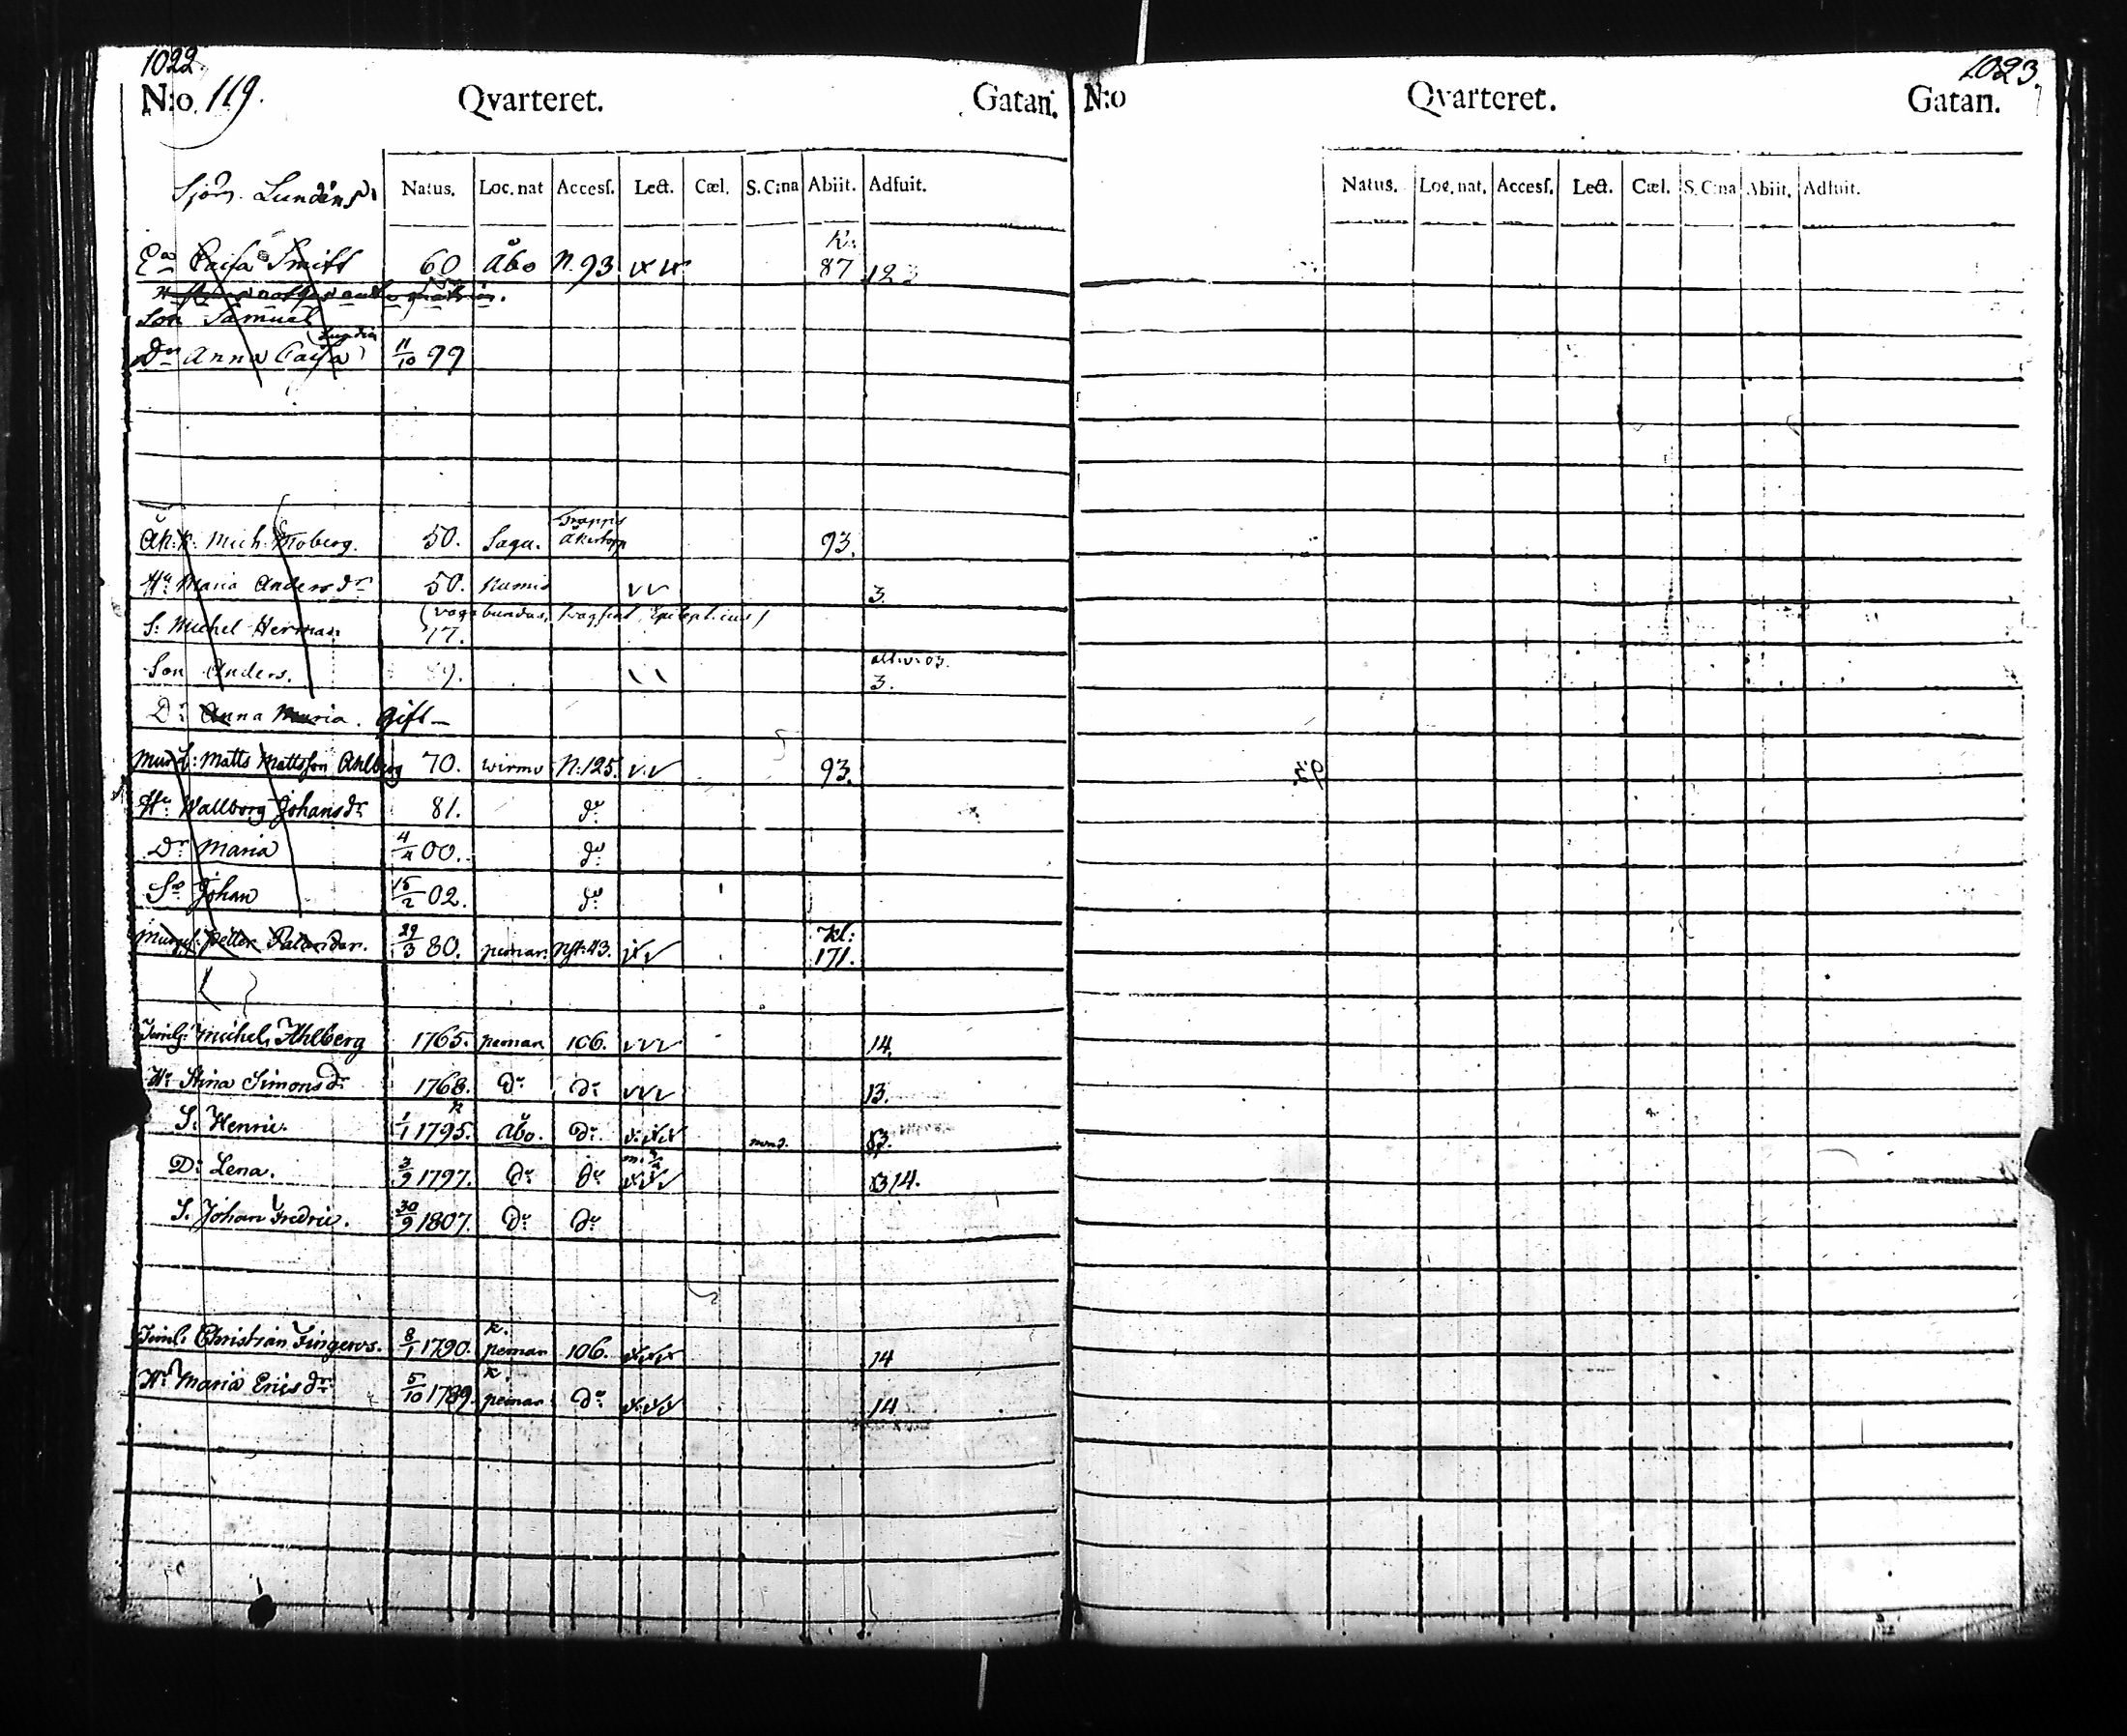 1022.
N:o 119. Qvarteret. Gatan.
Sjöm. Lundéns
Natus. Loc. nat Accesſ. Lect. Cæl. S. C:na Abiit. Adfuit.
Ea Caisa Smitt 60 Åbo N. 93 K: 87 123
Son Samuel
Dr Anna Caisa Lundin 11/10 99
Åk:k. Mich Moberg. 50. Sagu. Åkertorp 93.
Hu Maria Andersdr 50. Kumis vv 3.
(vagabundus, Epilepticus)
S: Michel Herman 77.
Son Anders. 3.
Dr Anna Maria. gift
Murl: Matts Mattsson Ahlberg 70. wirmo N:125. v.v 93.
Hu Wallborg Johansdr 81. do
Dr Maria 4/4 00. do
Sn Johan 15/2 02. do
Murges: Petter 29/3 80. pemar. Nyt. 43. kl: 171.
Timlg: Michel Ahlberg 1765. pemar 106. vvv 14.
Hu Stina Simonsdr 1768. do do vvv 13.
S. Henric. 1/1 1795. Åbo. do 
Dr Lena. 3/9 1797. do do 14.
S. Johan Fredric. 30/9 1807. do do
Timl: Christian Fingerroos. 8/1 1790. k. pemar 106. 14
Hu Maria Ericsdr 5/10 1789. k. pemar do 14
1023.
N:o Qvarteret. Gatan.
Natus. Loc. nat. Accesſ. Lect. Cæl. S. C:na Abiit. Adfuit.